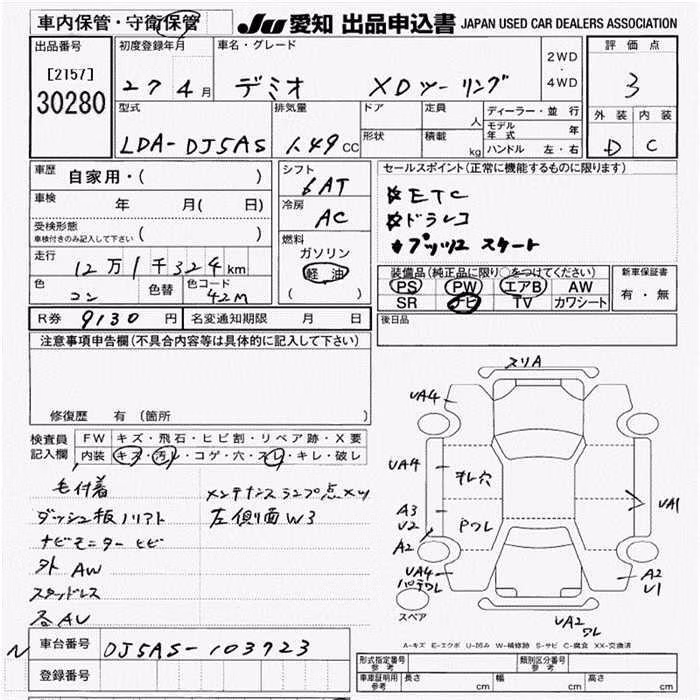 車内保管・守衛保管
JU 愛知 出品申込書 JAPAN USED CAR DEALERS ASSOCIATION
出品番号
[2157]
30280
初度登録年月
27 4月
車名・グレード
デミオ XDツーリング
2WD
・
4WD
評価点
3
外装 内装
D C
型式
LDA-DJ5AS
排気量
1.49cc
ドア
形状
定員
人
積載
kg
ディーラー・並行
モデル年式 年
ハンドル 左・右
車歴 自家用・( )
車検 年 月( 日)
受検形態
車検付きのみ記入して下さい ( )
走行 12万1千324km
色 コン 色替 色コード 42M
シフト
6AT
冷房
AC
燃料
ガソリン
軽油
( )
セールスポイント(正常に機能するものに限ります)
ETC
ドラレコ
プッシュスタート
装備品(純正品に限り○をつけてください)
PS PW エアB AW
SR ナビ TV カワシート
新車保証書
有・無
R券 9130円 名変通知期限 月 日
後日品
注意事項申告欄(不具合内容等は具体的に記入して下さい)
修復歴 有(箇所 )
検査員記入欄
FW キズ・飛石・ヒビ割・リペア跡・X要
内装 キズ・汚レ・コゲ・穴・スレ・キレ・破レ
毛付着
メンテナンスランプ点メツ
ダッシュ板ノリアト
左側面W3
ナビモニターヒビ
外AW
スタッドレス
各AU
スリA
UA4
UA4
キレ穴
A3
U2
Pワレ
UA1
A2
UA4
パテワレ
A2
U1
スペア
UA2
ワレ
A-キズ E-エクボ U-凹み W-補修跡 S-サビ C-腐食 XX-交換済
N
車台番号 DJ5AS-103723
登録番号
形式指定番号 参考
類別区分番号 参考
車庫証明用 参考
長さ cm 幅 cm 高さ cm